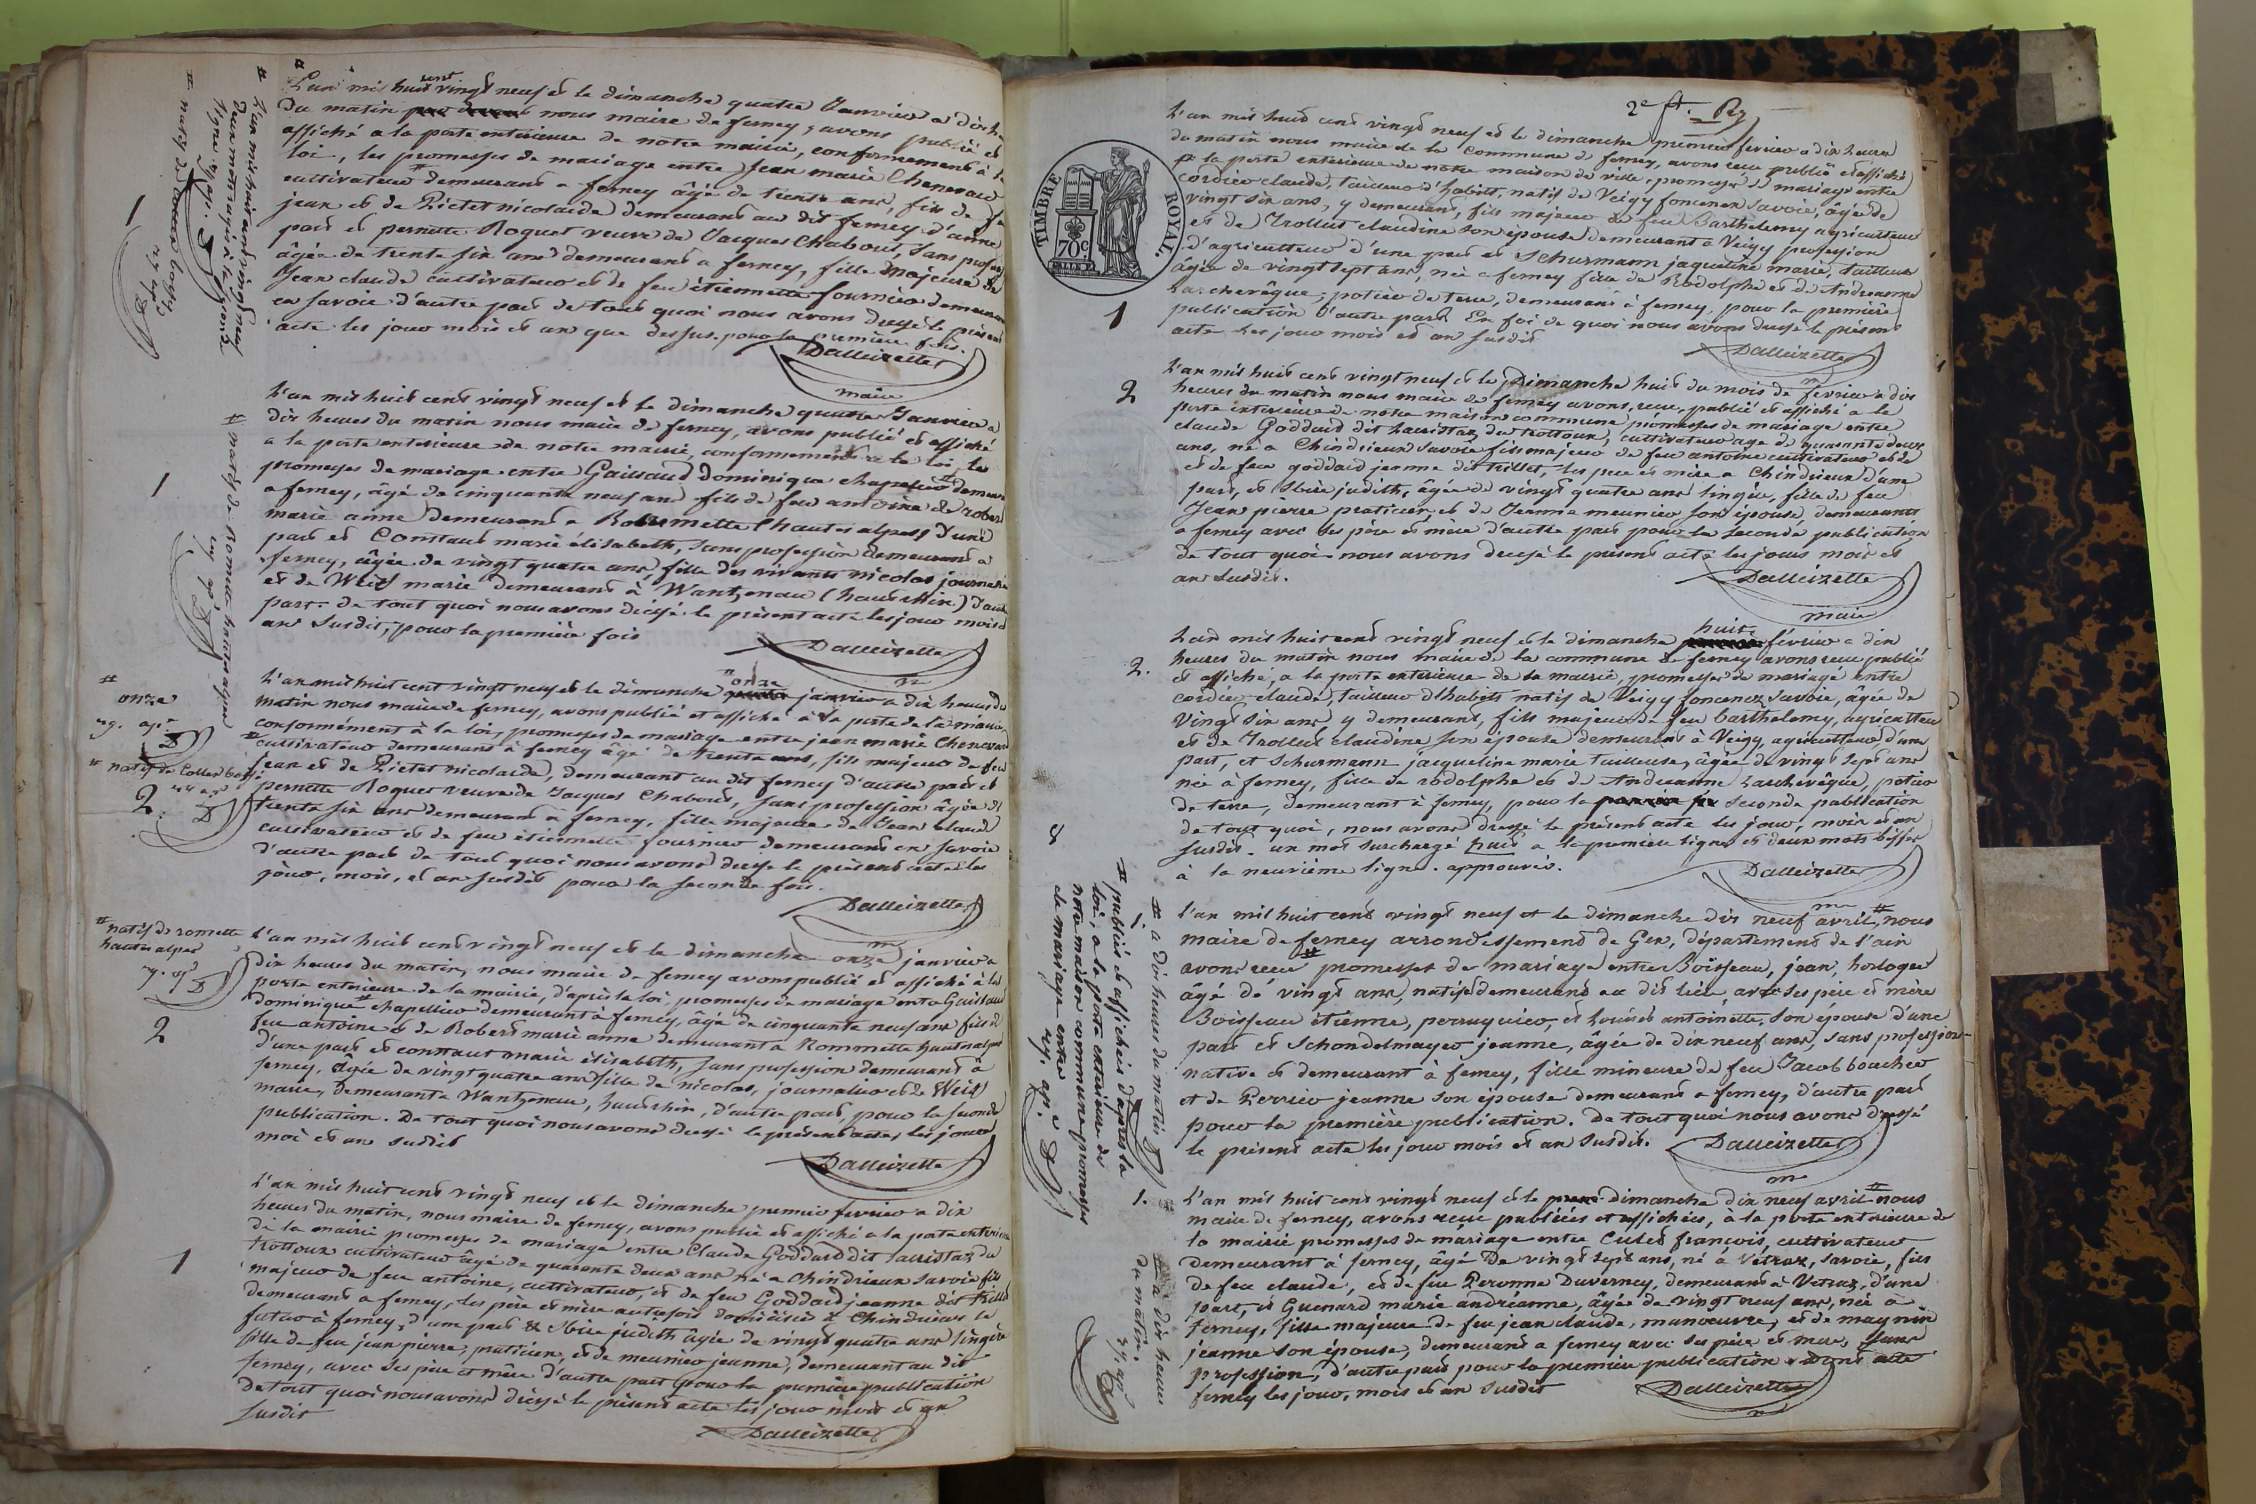 L'an mil huit cent vingt neuf et le dimanche quatre Janvier a dix h
du matin nous maire de ferney, avons publié et
affiché a la porte exterieure de notre mairie, conformement a la
loi, les promesses de mariage entre Jean marie Chenevac
cultivateur # demeurant a ferney âgé de trente ans, fils de feu
jean et de Pictet nicolarde demeurant au dit ferney d'une
part et pernette Roguet veuve de Jacques Chabout, sans profes
âgée de trente six ans demeurant a ferney, fille majeure de
Jean claude cultivateur et de feu étiennette fournier demeurant
en savoie d'autre part de tout quoi nous avons dressé le présent
acte les jour mois et an que dessus. pour la première fois.
Dalleizette
maire
1
L'an mil huit cent vingt neuf et le dimanche quatre Janvier a
dix heures du matin nous maire de ferney, avons publié et affiché
a la porte exterieure de notre mairie, conformement a la loi, les
promesses de mariage entre Gaillaud Dominique chapelier # demeur
a ferney, âgé de cinquante neuf ans fils de feu antoine de robert
marie anne demeurant a Rommette (hautes alpes) d'une
part et Constant marie élisabeth, sans profession demeurant a
ferney, âgée de vingt quatre ans, fille des vivants nicolas journalier
et de Weiss marie demeurant à Wantzenau (haut rhin) d'autre
part. de tout quoi nous avons dressé le présent acte les jour mois et
an susdit, pour la première fois
Dalleizette
m
1
# natif de Romette hautes alpes
L'an mil huit cent vingt neuf et le dimanche # onze janvier a dix heures du
matin nous maire de ferney, avons publié et affiché à la porte de la mairie,
conformément à la loi, promesses de mariage entre jean marie Chenevac
# cultivateur demeurant à ferney âgé de trente ans, fils majeur de feu
jean et de Pictet nicolarde, demeurant au dit ferney d'autre part et
pernette Roguet veuve de Jacques Chabout, sans profession âgée de
trente six ans demeurant à ferney, fille majeure de Jean claude
cultivateur et de feu étiennette fournier demeurant en savoie
d'autre part de tout quoi nous avons dressé le présent acte les
jour, mois, et an susdit pour la seconde fois.
Dalleizette
m
# onze
2
# natif de romette
hautes alpes
L'an mil huit cent vingt neuf et le dimanche onze janvier a
dix heures du matin, nous maire de ferney avons publié et affiché à la
porte exterieure de la mairie, d'après la loi, promesses de mariage entre Gaillaud
dominique # chapellier demeurant à ferney, âgé de cinquante neuf ans fils de
feu antoine et de Robert marie anne demeurant à Rommette hautes alpes
d'une part et constant marie élisabeth, sans profession demeurant à
ferney, âgée de vingt quatre ans fille de nicolas, journalier et de Weiss
marie, demeurant a Wantzenau, haut rhin, d'autre part, pour la seconde
publication. De tout quoi nous avons dressé le présent acte, les jour
moi et an susdit
Dalleizette
2
L'an mil huit cent vingt neuf et le dimanche premier fevrier a dix
heures du matin, nous maire de ferney, avons publié et affiché a la porte exterieure
de la mairie promesses de mariage entre Claude Goddard dit
trottoux cultivateur âgé de quarante deux ans né a Chindrieux Savoie fils
majeur de feu antoine, cultivateur, et de feu Goddard jeanne dit trillet
demeurant a ferney, les père et mère autrefois domiciliés à Chindrieux le
futur à ferney, d'une part & Ibire judith âgée de vingt quatre ans lingère
fille de feu jean pierre, praticien, et de meunier jeanne, demeurant au dit
ferney, avec ses père et mère d'autre part pour la première publication
de tout quoi nous avons dressé le présent acte les jour mois et an
susdit
Dalleizette
1
2e ft.
TIMBRE ROYAL.
70c
L'an mil huit cent vingt neuf et le dimanche premier fevrier a dix heures
du matin nous maire de la commune de ferney, avons reçu publié et affiché
a la porte exterieure de notre maison de ville, promesses de mariage entre
Cordier claude, tailleur d'habits, natif de Veigy foncenex savoie, âgé de
vingt six ans, y demeurant, fils majeur de feu Barthelemy agriculteur
et de Trollut claudine son épouse demeurant à Veigy profession
d'agriculteur d'une part et Schurmann jaqueline marie, tailleuse
âgée de vingt sept ans, née a ferney fille de Rodolphe et de Andreanne
Larchevêque, potier de terre, demeurant à ferney, pour la première
publication d'autre part. En foi de quoi nous avons dressé le présent
acte les jour mois et an susdit
Dalleizette
m
1
L'an mil huit cent vingt neuf et le Dimanche huit du mois de fevrier a dix
heures du matin nous maire de ferney avons, reçu, publié et affiché a la
porte intérieure de notre maison commune promesses de mariage entre
claude Goddard dit du trottoux, cultivateur age de quarante deux
ans, né a Chindrieux Savoie fils majeur de feu antoine cultivateur et de
et de feu goddard jeanne dit trillet, les père et mère a Chindrieux d'une
part, et Ibire judith, âgée de vingt quatre ans lingère, fille de feu
Jean pierre praticien, et de Jeanne meunier son épouse, demeurants
a ferney avec ses père et mère d'autre part pour la seconde publication
de tout quoi nous avons dressé le présent acte les jours mois et
an susdit.
Dalleizette
maire
2
L'an mil huit cent vingt neuf et le dimanche huit février a dix
heures du matin nous maire de la commune de ferney avons reçu publié
et affiché, a la porte exterieure de la mairie, promesses de mariage entre
cordier claude, tailleur d'habits natif de Veigy foncenex savoie, âgée de
Vingt six ans, y demeurant, fils majeur de feu barthelemy, agriculteur
et de Trollut claudine son épouse demeurant à Veigy, agriculteur d'une
part, et Schurmann jacqueline marie tailleuse, âgée de vingt sept ans
née à ferney, fille de rodolphe et de Andreanne Larchevêque, potier
de terre, demeurant à ferney, pour la seconde publication
de tout quoi, nous avons dressé le présent acte les jour, mois et an
susdit. un mot surchargé huit a la première ligne et deux mots biffés
à la neuvième ligne. approuvés.
Dalleizette
m
2.
L'an mil huit cent vingt neuf et le dimanche dix neuf avril # nous
maire de ferney arrondissement de Gex, département de l'ain
avons reçu # promesses de mariage entre Boisseau, jean, horloger
âgé de vingt ans, natif demeurant au dit lieu, avec ses père et mère
Boisseau étienne, perruquier, et Louise antoinette, son épouse d'une
part et Schondelmayer jeanne, âgée de dix neuf ans, sans profession
native et demeurant à ferney, fille mineure de feu Jacob boucher
et de Perrier jeanne son épouse demeurant a ferney, d'autre part
pour la première publication. De tout quoi nous avons dressé
le présent acte les jour mois et an susdit.
Dalleizette
m
1
# a dix heures du matin
# publiés et affichés d'après la
loi, a la porte exterieure de
notre maison commune promesses
de mariage entre
L'an mil huit cent vingt neuf et le dimanche dix neuf avril # nous
maire de ferney, avons reçu publiées et affichées, à la porte exterieure de
la mairie promesses de mariage entre Culet françois, cultivateur
demeurant à ferney, âgé De vingt sept ans, né à Vétraz, savoie, fils
de feu claude, et de feu Peronne Duverney, demeurant à Vetraz, d'une
part, et Guenard marie andréanne, âgée de vingt neuf ans, née a
ferney, fille majeure de feu jean claude, manoeuvre, et de maynin
jeanne son épouse, demeurant a ferney avec ses père et mère, sans
profession, d'autre part pour la premiere publication
ferney les jour, mois et an susdit
Dalleizette
1.
# a dix heures
du matin.